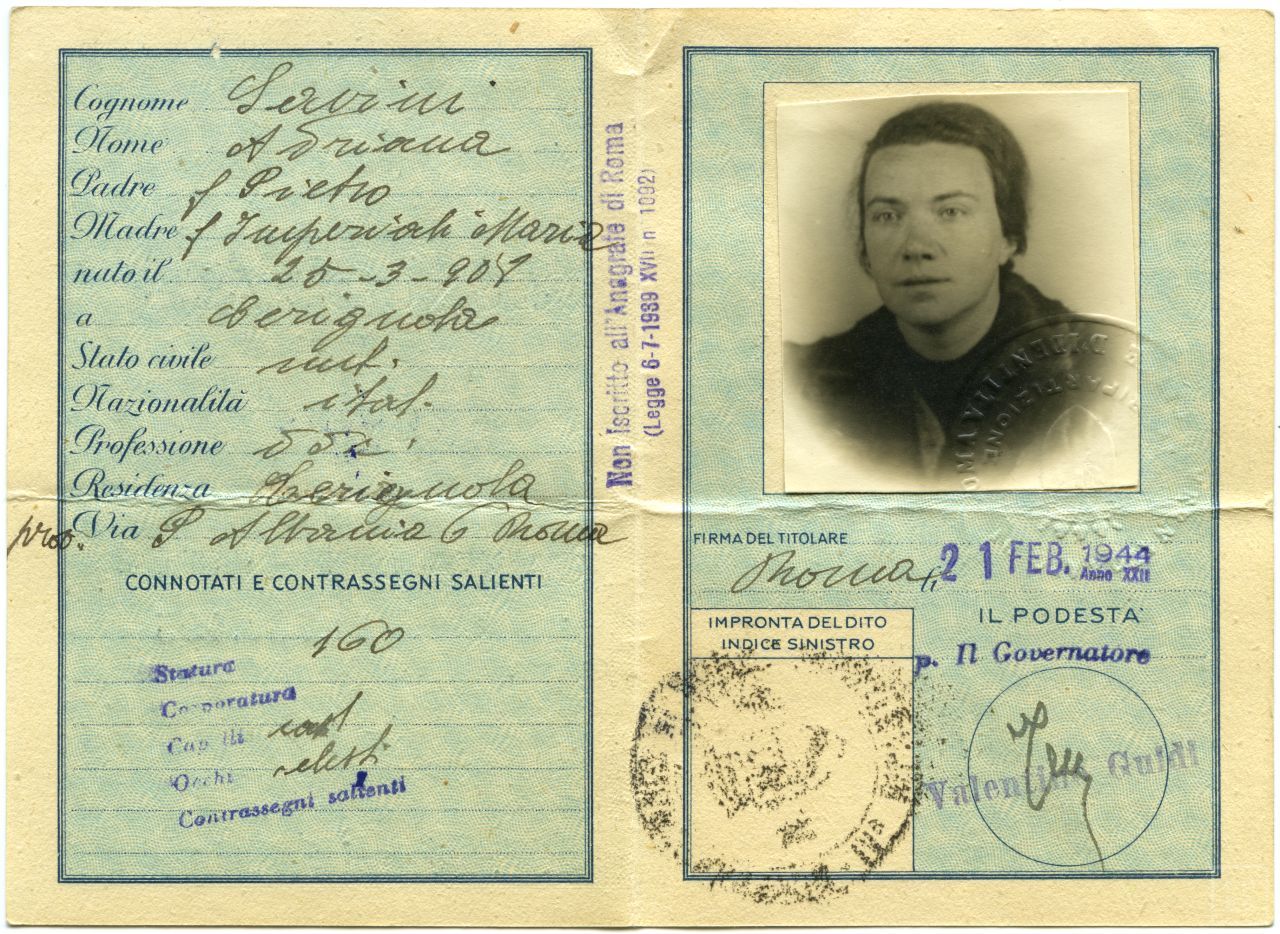 Cognome Servini
Nome Adriana
Padre f Pietro
Madre f Imperiali Maria
nato il 25-3-907
a Cerignola
Stato civile nub.
Nazionalità ital.
Professione
Residenza Cerignola
prov. Via P Albania 6 Roma
CONNOTATI E CONTRASSEGNI SALIENTI
Statura 160
Corporatura
Capelli cast
Occhi celesti
Contrassegni salienti
Non iscritto all'Anagrafe di Roma
(Legge 6-7-1939 XVII n 1092)
RIPARTIZIONE
D'IDENTITÀ
FIRMA DEL TITOLARE
Roma, li 21 FEB. 1944
Anno XXII
IMPRONTA DEL DITO
INDICE SINISTRO
IL PODESTA'
p. Il Governatore
Valentino Guidi